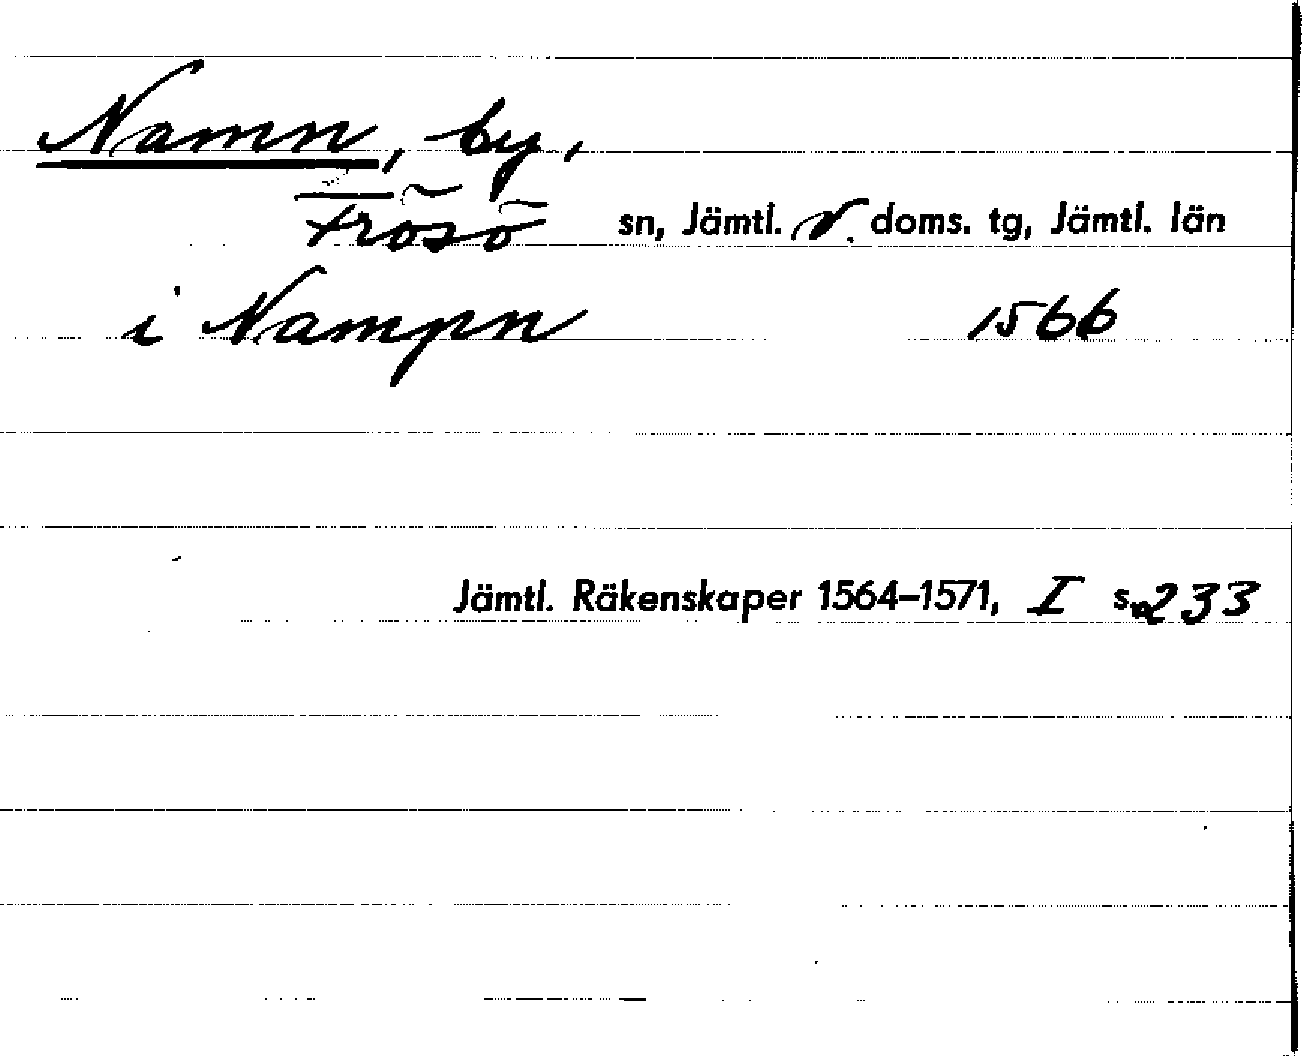 Namn, by,
Frösö sn, Jämtl. v. doms. tg, Jämtl. län
i Nampn 1566
Jämtl. Räkenskaper 1564–1571, I s. 233